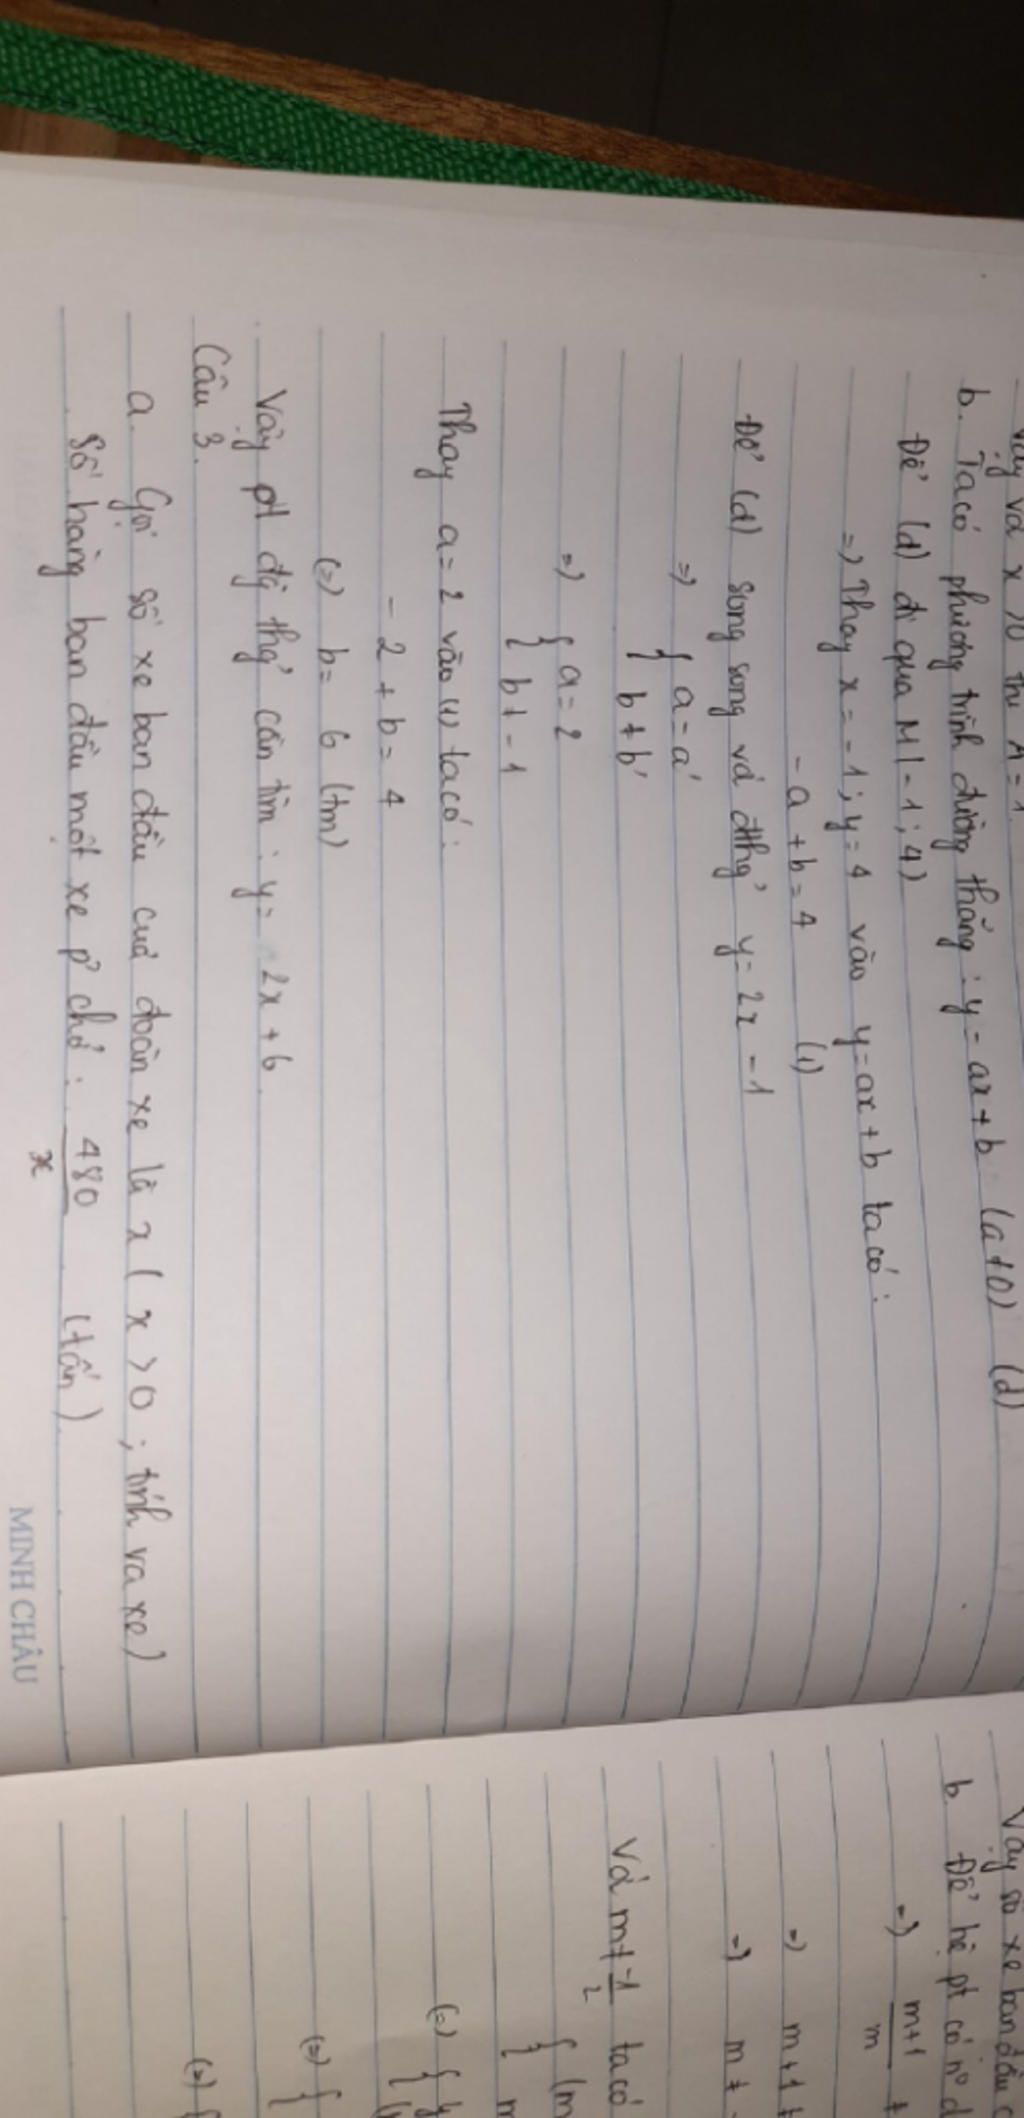 Vậy và x > 0 thì A = 1.
b. Ta có phương trình đường thẳng : y = ax + b (a ≠ 0) (d)
Để (d) đi qua M (-1 ; 4)
=> Thay x = -1 ; y = 4 vào y = ax + b ta có :
- a + b = 4 (1)
Để (d) song song vá đthg' y = 2x - 1
=> { a = a'
{ b ≠ b'
=> { a = 2
{ b ≠ - 1
Thay a = 2 vào (1) ta có :
- 2 + b = 4
(=) b = 6 (tm)
Vậy pt đg thg' cần tìm : y = 2x + 6
Câu 3.
a. Gọi số xe ban đầu của đoàn xe là x ( x > 0 ; tính va xe )
Số hàng ban đầu một xe p' chở : 480/x (tấn)
MINH CHÂU
Vậy số xe ban đầu c
b. Để hệ pt có nº d
=> m+1/m ≠
=> m + 1 ≠
=> m ≠
Vá m ≠ -1/2 ta có
{ (m
{ m
(=) { y
{ (
(=) {
(=) {